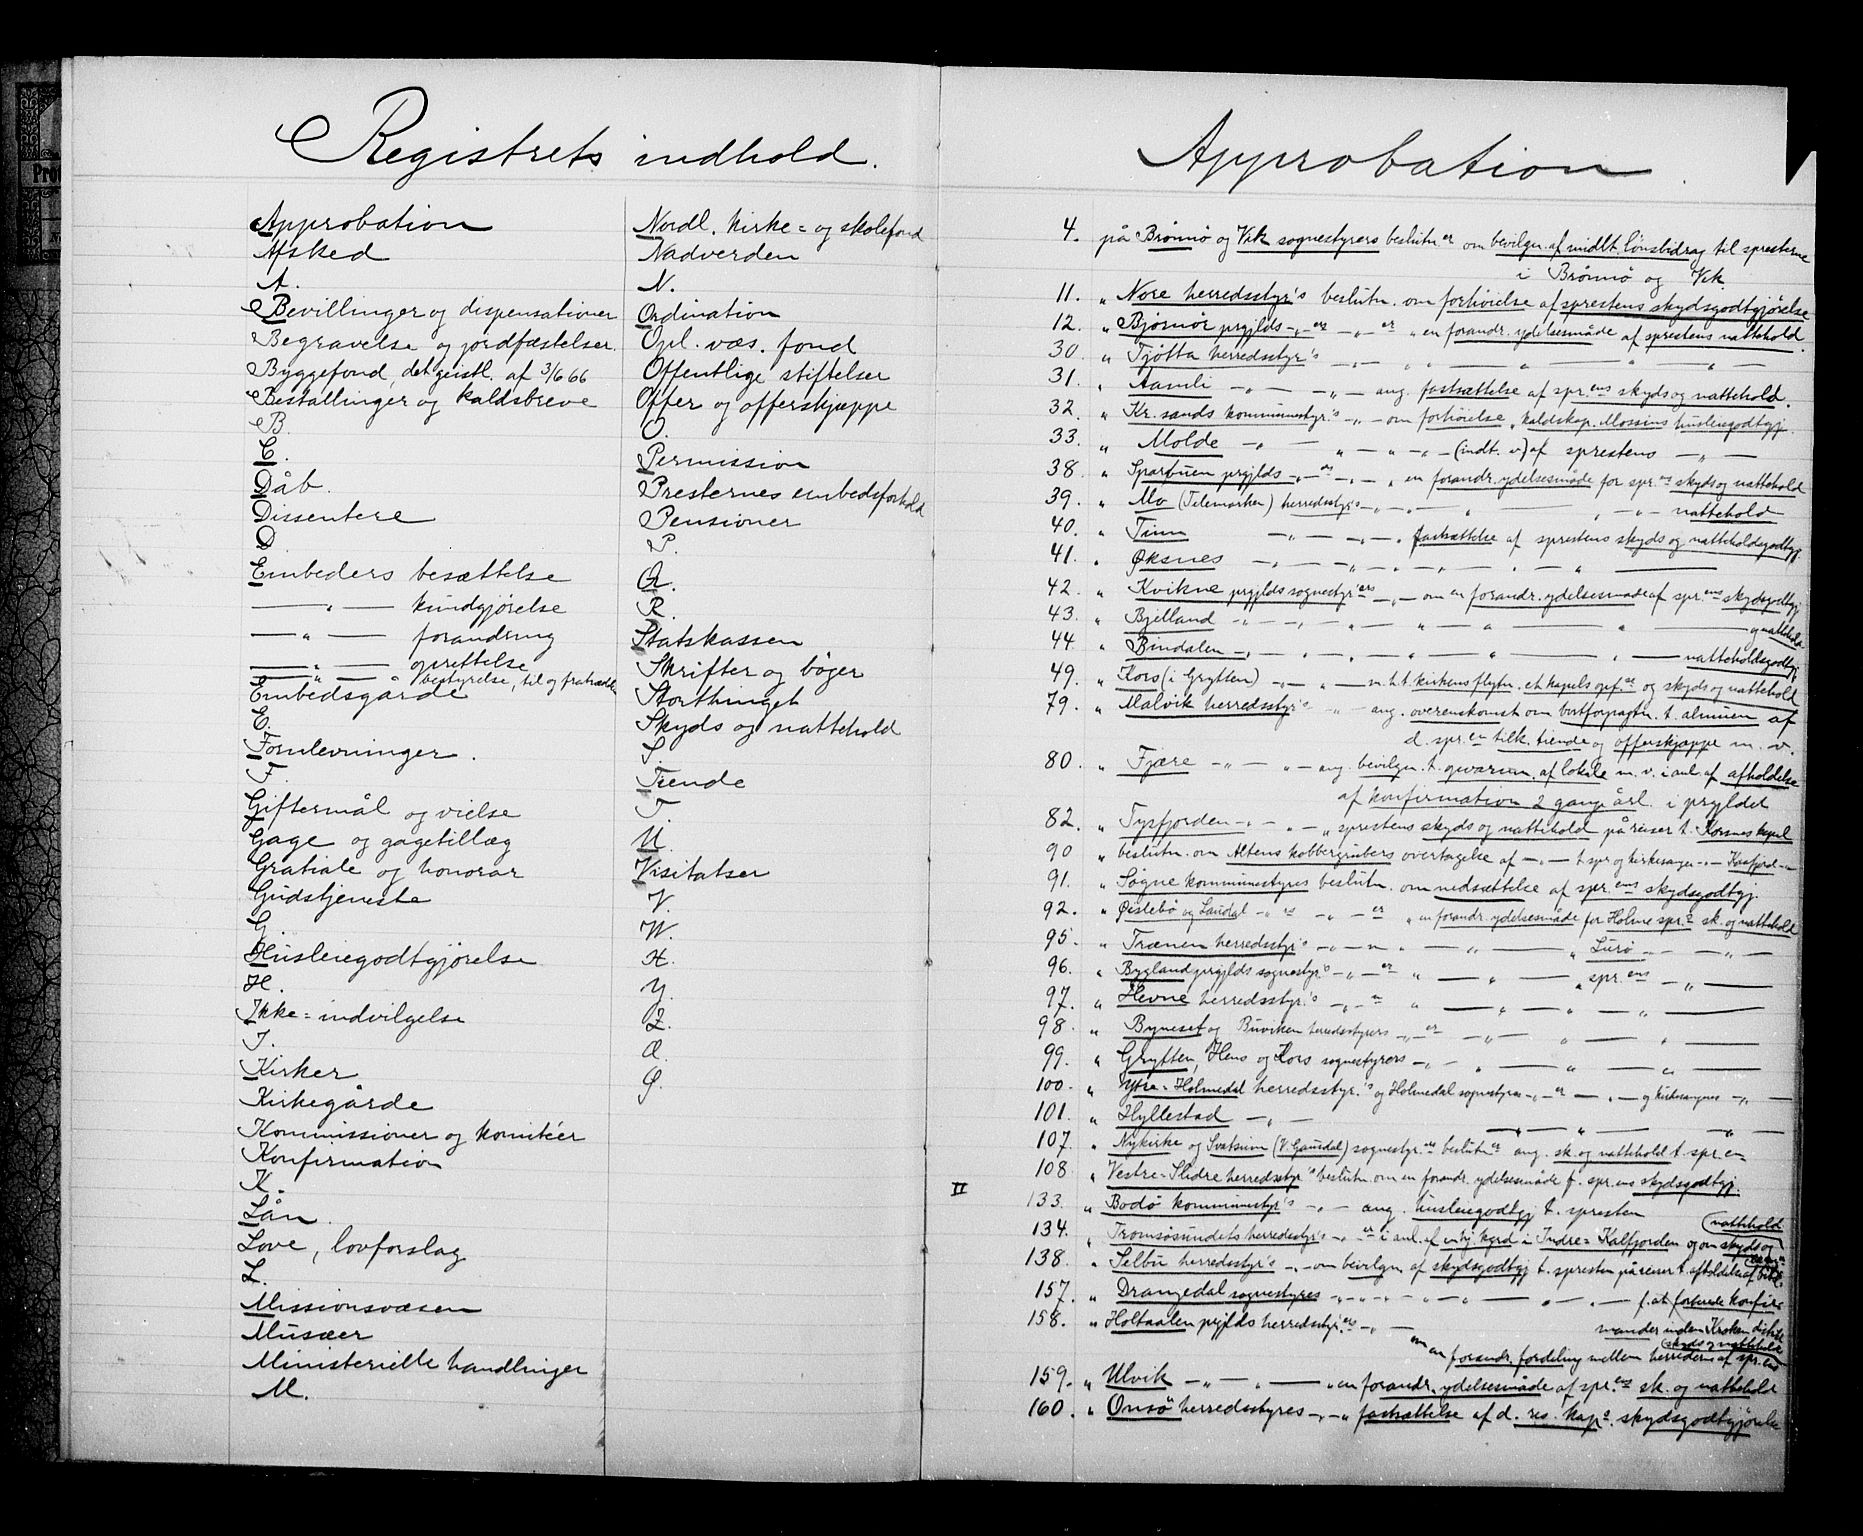 Registrets indhold.
Approbation
Afsked
A.
Bevillinger og dispensationer
Begravelse og jordfæstelser.
Byggefond, det geistl. af 3/6 66
Bestallinger og kaldsbreve
B.
C.
Dåb.
Dissentere
D.
Embeders besættelse
—„— kundgjørelse
—„— forandring
—„— oprettelse
—„— bestyrelse, til og fratrædelse
Embedsgårde
E.
Fornlevninger.
F.
Giftermål og vielse
Gage og gagetillæg
Gratiale og honorar
Gudstjeneste
G.
Husleiegodtgjørelse
H.
Ikke=indvilgelse
I.
Kirker
Kirkegårde
Kommissioner og komitéer
Konfirmation
K.
Lån.
Love, lovforslag
L.
Missionsvæsen
Musæer
Ministerielle handlinger
M.
Nordl. kirke= og skolefond
Nadverden
N.
Ordination
Opl. væs. fond
Offentlige stiftelser
Offer og offerskjæppe
O.
Permission
Presternes embedsforhold
Pensioner
P.
Q.
R.
Statskassen
Skrifter og bøger
Storthinget
Skyds og nattehold
S.
Tiende
T.
U.
Visitatser
V.
W.
X.
Y.
Z.
Æ.
Ø.
Approbation.
4. på Brønnø og Vik sognestyrers beslutn.er om bevilgn. af midlt. lønsbidrag til spresterne
i Brønnø og Vik.
11. „ Nore herredsstyr's beslutn. om forhøielse af sprestens skydsgodtgjørelse
12. „ Bjørnør prgjlds —„— er —„— er „ en forandr. ydelsesmåde af sprestens nattehold.
30. „ Tjøtta herredsstyr's —„— „ — „ — „ —
31. „ Aamli —„— —„— ang. fastsættelse af spr.ens skyds og nattehold.
32. „ Kr.sands kommunestyr's —„— om forhøielse „ kaldskap. Mossins husleiegodtgj.
33. „ Molde —„— „ — „ —„— (indt. v) af sprestens —„—
38. „ Sparbuen prgjlds —„— —„— „ en forandr. ydelsesmåde for spr.ens skyds og nattehold
39. „ Mo (Telemarken) herredsstyr's —„— „ — „ —„— nattehold
40. „ Tinn —„— —„— „ fastsættelse af sprestens skyds og natteholdsgodtgj.
41. „ Øksnes —„— —„— „ — „ — „ —
42. „ Kvikne prgjlds sognestyr'ers —„— om en forandr. ydelsesmåde af spr.ens skydsgodtgj.
43. „ Bjelland —„— „ — „ — „ — „ — og nattehold
44. „ Bindalen —„— „ — „ — „ — „ — natteholdsgodtgj.
49. „ Kors (i Grytten) —„— „ — m.h.t. kirkens flytn. et kapels opf.se og skyds og nattehold
79. „ Malvik herredsstyr's —„— ang. overenskomst om bortforpagtn. t. almuen af
d. spr.en tilk. tiende og offerskjæppe m. v.
80. „ Fjære —„— „ — ang. bevilgn. t. af lokale m. v. i anl. af afholdelse
af konfirmation 2 gange årl. i prgjldet
82. „ Tysfjorden —„— „ — „ sprestens skyds og nattehold på reiser t. Korsnes kapel
90 „ beslutn. om Altens kobbergrubers overtagelse af —„— t. spr. og kirkesanger —„— Kaafjord
91. „ Søgne kommunestyres beslutn. om nedsættelse af spr.ens skydsgodtgj.
92. „ Øislebø og Laudal —„— es —„— er „ en forandr. ydelsesmåde for Holme spr.s sk. og nattehold
95. „ Trænen herredsstyr's —„— „ — „ — „ Lurø —„—
96. „ Bygland prgjlds sognestyr's —„— er „ — „ — „ spr.ens —„—
97. „ Hevne herredsstyr.'s —„— „ — „ — „ —
98. „ Byneset og Buviken herredsstyrers —„— er —„— „ — „ —
99. „ Grytten, Hens og Kors sognestyrers —„— „ — „ — „ —
100. „ Ytre=Holmedal herredsstyr.'s og Holmedal sognestyres —„— er — „ — og kirkesangers —„—
101. „ Hyllestad —„— „ — „ — „ —
107. „ Nykirke og Svatsum (V. Gausdal) sognestyr.ers beslutn.er ang. sk. og nattehold t. spr.en
108 „ Vestre=Slidre herredsstyr's beslutn. om en forandr. ydelsesmåde f. spr.ens skydsgodtgj.
II 133. „ Bodø kommunestyr's —„— ang. husleiegodtgj. t. spresten
134. „ Tromsøsundets herredsstyr's —„— er i anl. af en kgrd i Indre=Kalfjorden og om skyds og nattehold
138. „ Selbu herredsstyr's —„— om bevilgn. af skydsgodtgj. t. spresten på reiser t. afholdelse af
157. „ Drangedal sognestyres —„— „ — „ — „ — „ — f. at forberede konfir-
mander inden Kroken distrikt
158. „ Holtaalen prgjlds herredsstyr.ers —„—
om en forandr. fordeling mellem herrederne af spr.ens skyds og nattehold
159. „ Ulvik —„— „ — „ en forandr. ydelsesmåde af spr.ens sk. og nattehold
160. „ Onsø herredsstyres —„— „ fastsættelse af d. res. kap.s skydsgodtgjørelse